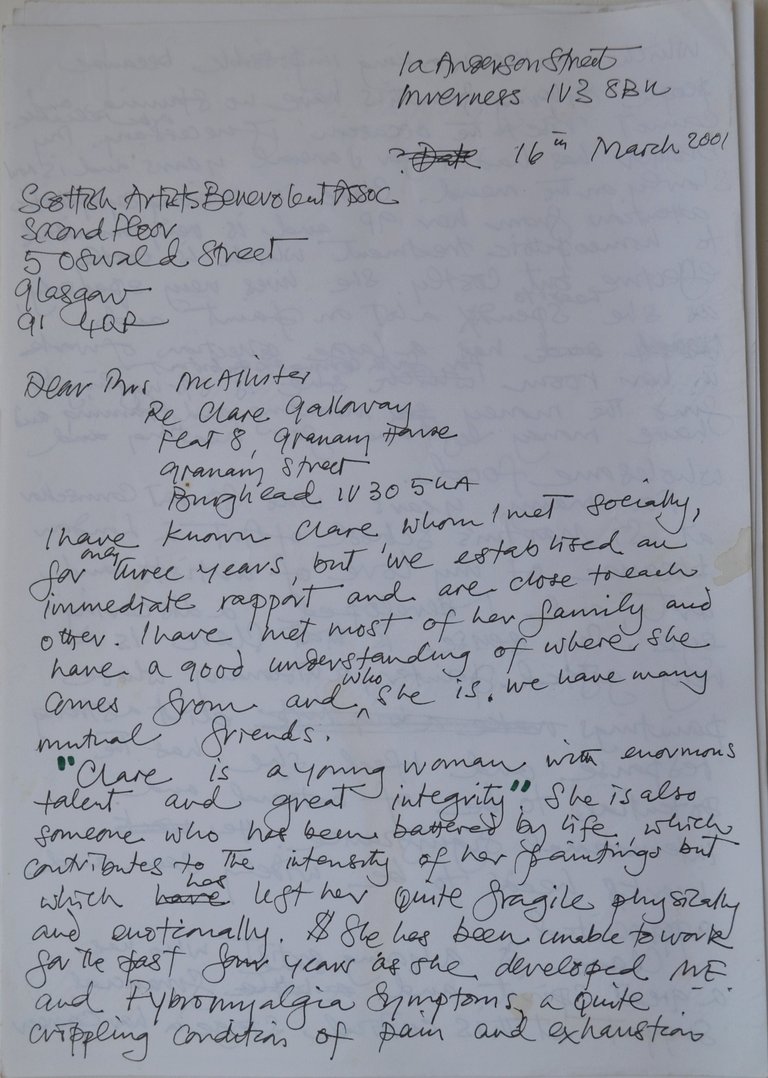 1a Anderson Street
Inverness IV3 8BU
16th March 2001
Scottish Artists Benevolent Assoc
Second Floor
5 Oswald Street
Glasgow
G1 4QR
Dear Mrs McAllister
Re Clare Galloway
Flat 8, Granary House
Granary Street
Burghead IV30 5UA
I have known Clare, whom I met socially,
for only three years, but we establised an
immediate rapport and are close to each
other. I have met most of her family and
have a good understanding of where she
comes from and who she is. We have many
mutual friends.
"Clare is a young woman with enormous
talent and great integrity". She is also
someone who has been battered by life, which
contributes to the intensity of her paintings but
which has left her quite fragile physically
and emotionally. She has been unable to work
for the past four years as she developed ME
and Fybromyalgia Symptoms, a quite
crippling condition of pain and exhaustion